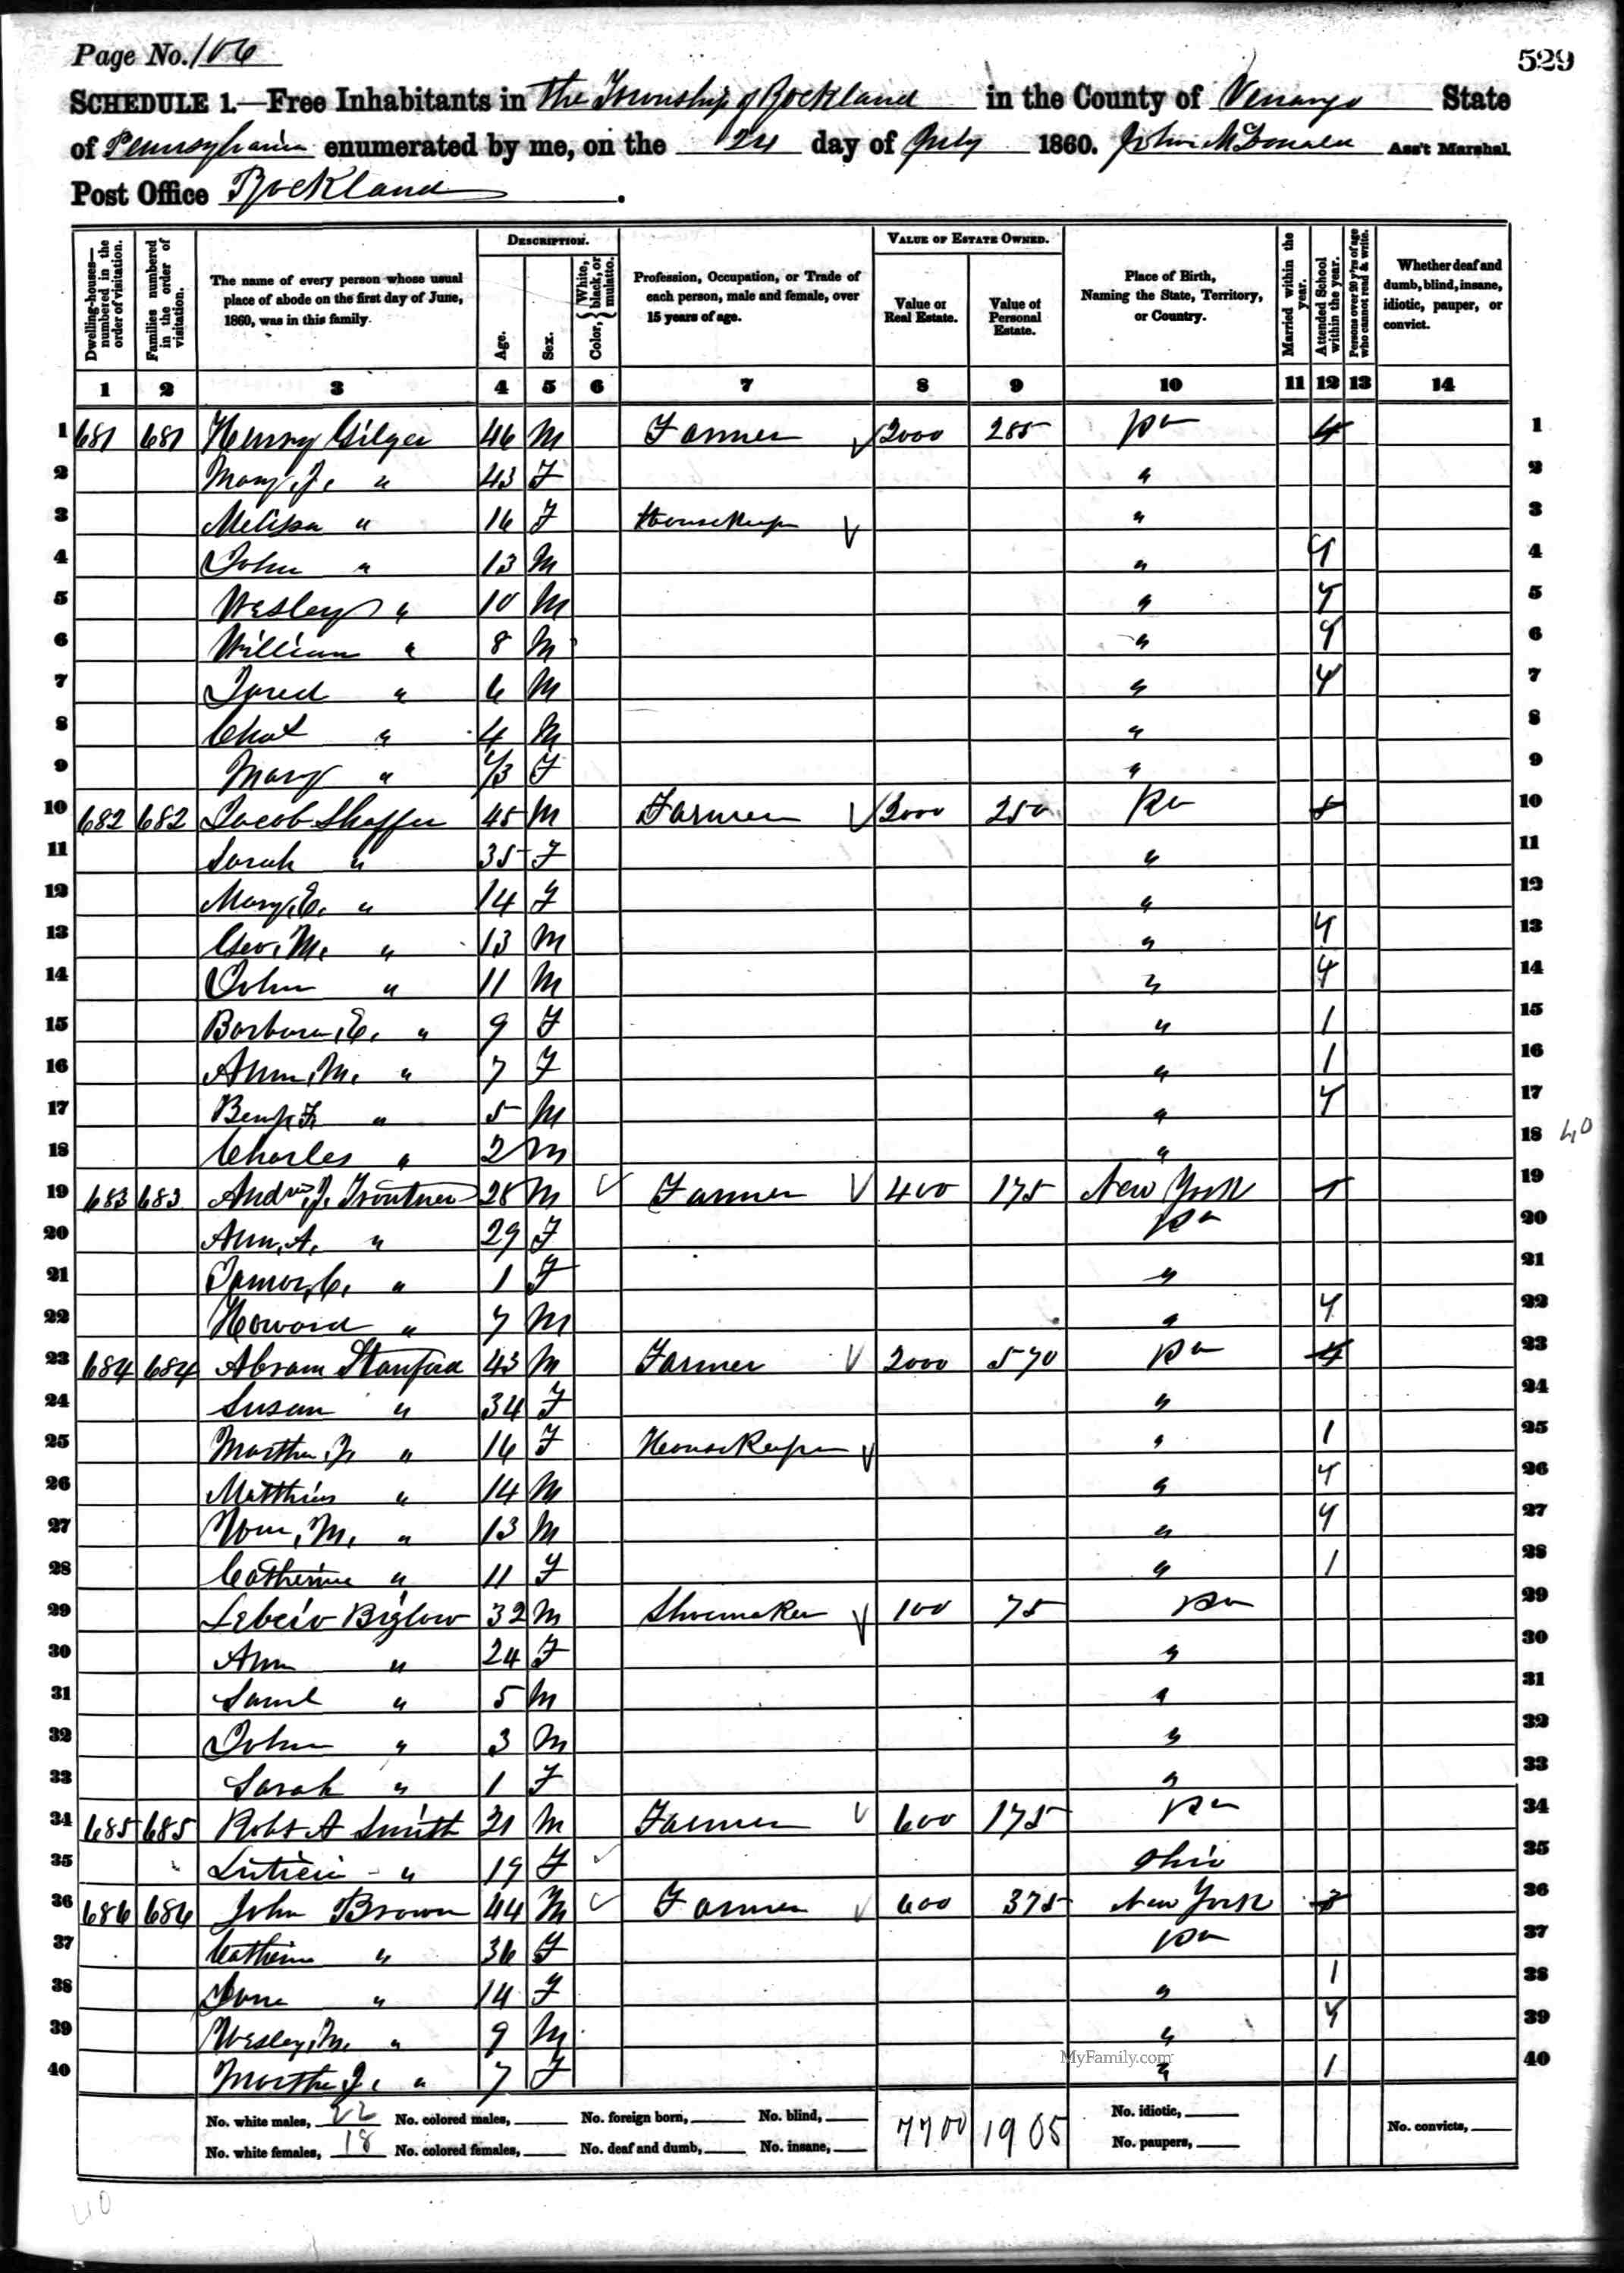 Page No. 106
529
SCHEDULE 1.—Free Inhabitants in The Township of Rockland in the County of Venango State
of Pennsylvania enumerated by me, on the 24 day of July 1860. John McDonald Ass't Marshal.
Post Office Rockland.
Dwelling-houses—numbered in the order of visitation.
Families numbered in the order of visitation.
The name of every person whose usual place of abode on the first day of June, 1860, was in this family.
DESCRIPTION.
Age.
Sex.
Color, { White, black, or mulatto.
Profession, Occupation, or Trade of each person, male and female, over 15 years of age.
VALUE OF ESTATE OWNED.
Value of Real Estate.
Value of Personal Estate.
Place of Birth, Naming the State, Territory, or Country.
Married within the year.
Attended School within the year.
Persons over 20 y'rs of age who cannot read & write.
Whether deaf and dumb, blind, insane, idiotic, pauper, or convict.
1 2 3 4 5 6 7 8 9 10 11 12 13 14
1 681 681 Henry Gilger 46 M Farmer 2000 285 Pa 4 1
2 Mary, J. " 43 F " 2
3 Melissa " 16 F Housekeeper " 3
4 John " 13 M " 4
5 Wesley " 10 M " 5
6 William " 8 M " 6
7 Jared " 6 M " 7
8 " 4 M " 8
9 Mary " 1/3 F " 9
10 682 682 Jacob Shaffer 45 M Farmer 2000 250 Pa 5 10
11 Sarah " 35 F " 11
12 Mary, E. " 14 F " 12
13 Geo. M. " 13 M " 13
14 John " 11 M " 14
15 Barbara, E. " 9 F " 1 15
16 Ann, M. " 7 F " 1 16
17 Benj. F. " 5 M " 17
18 Charles " 2 M " 18 40
19 683 683 Andrw J. Troutner 28 M Farmer 400 175 New York 1 19
20 Ann, A. " 29 F Pa 20
21 C. " 1 F " 21
22 Howard " 7 M " 22
23 684 684 Abram Stanford 43 M Farmer 2000 570 Pa 4 23
24 Susan " 34 F " 24
25 Martha, J. " 16 F Housekeeper " 1 25
26 Matthias " 14 M " 26
27 Wm, M. " 13 M " 27
28 Catherine " 11 F " 1 28
29 Biglow 32 M Shoemaker 100 75 Pa 29
30 Ann " 24 F " 30
31 Saml " 5 M " 31
32 John " 3 M " 32
33 Sarah " 1 F " 33
34 685 685 Robt A Smith 21 M Farmer 600 175 Pa 34
35 " 19 F Ohio 35
36 686 686 John Brown 44 M Farmer 600 375 New York 3 36
37 Catherine " 36 F Pa 37
38 Jane " 14 F " 1 38
39 Wesley, M. " 9 M " 39
40 Martha J. " 7 F " 1 40
MyFamily.com
No. white males, 22 No. colored males, No. foreign born, No. blind, 7700 1905 No. idiotic, No. convicts,
No. white females, 18 No. colored females, No. deaf and dumb, No. insane, No. paupers,
40